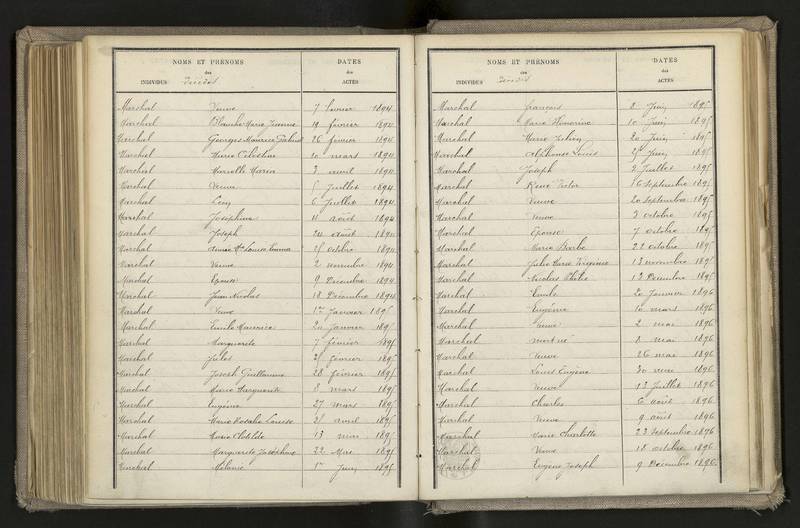 NOMS ET PRÉNOMS
des
INDIVIDUS Décédés
DATES
des
ACTES
Marchal Veuve 7 février 1894
Marchal Blanche Marie Jeanne 19 février 1894
Marchal Georges Maurice Gabriel 26 février 1894
Marchal Marie Célestine 20 mars 1894
Marchal 3 avril 1894
Marchal Veuve 5 Juillet 1894
Marchal Léon 6 Juillet 1894
Marchal Joséphine 11 août 1894
Marchal Joseph 20 août 1894
Marchal Louise Emma 25 octobre 1894
Marchal Veuve 2 novembre 1894
Marchal Epouse 9 Décembre 1894
Marchal Jean Nicolas 18 Décembre 1894
Marchal Veuve 1er Janvier 1895
Marchal Emile Maurice 20 Janvier 1895
Marchal Marguerite 7 février 1895
Marchal Jules 25 février 1895
Marchal Joseph Guillaume 28 février 1895
Marchal Marie Marguerite 8 mars 1895
Marchal Eugénie 27 mars 1895
Marchal Marie Rosalie Louise 25 avril 1895
Marchal Marie Clotilde 13 mai 1895
Marchal Marguerite Joséphine 22 Mai 1895
Marchal Mélanie 1er Juin 1895
NOMS ET PRÉNOMS
des
INDIVIDUS Décédés
DATES
des
ACTES
Marchal François 2 Juin 1895
Marchal Marie Honorine 10 Juin 1895
Marchal Marie 20 Juin 1895
Marchal Alphonse Louis 25 Juin 1895
Marchal Joseph 9 Juillet 1895
Marchal René Victor 16 Septembre 1895
Marchal Veuve 20 Septembre 1895
Marchal Veuve 3 octobre 1895
Marchal Epouse 7 octobre 1895
Marchal Marie Barbe 22 octobre 1895
Marchal Julie Marie Virginie 13 novembre 1895
Marchal Nicolas 12 Décembre 1895
Marchal Emile 20 Janvier 1896
Marchal Eugénie 10 mars 1896
Marchal Veuve 2 mai 1896
Marchal 8 mai 1896
Marchal Veuve 26 mai 1896
Marchal Louis Eugène 30 mai 1896
Marchal Veuve 12 Juillet 1896
Marchal Charles 6 août 1896
Marchal Veuve 9 août 1896
Marchal Marie Charlotte 23 Septembre 1896
Marchal Veuve 18 octobre 1896
Marchal Eugène Joseph 9 Décembre 1896